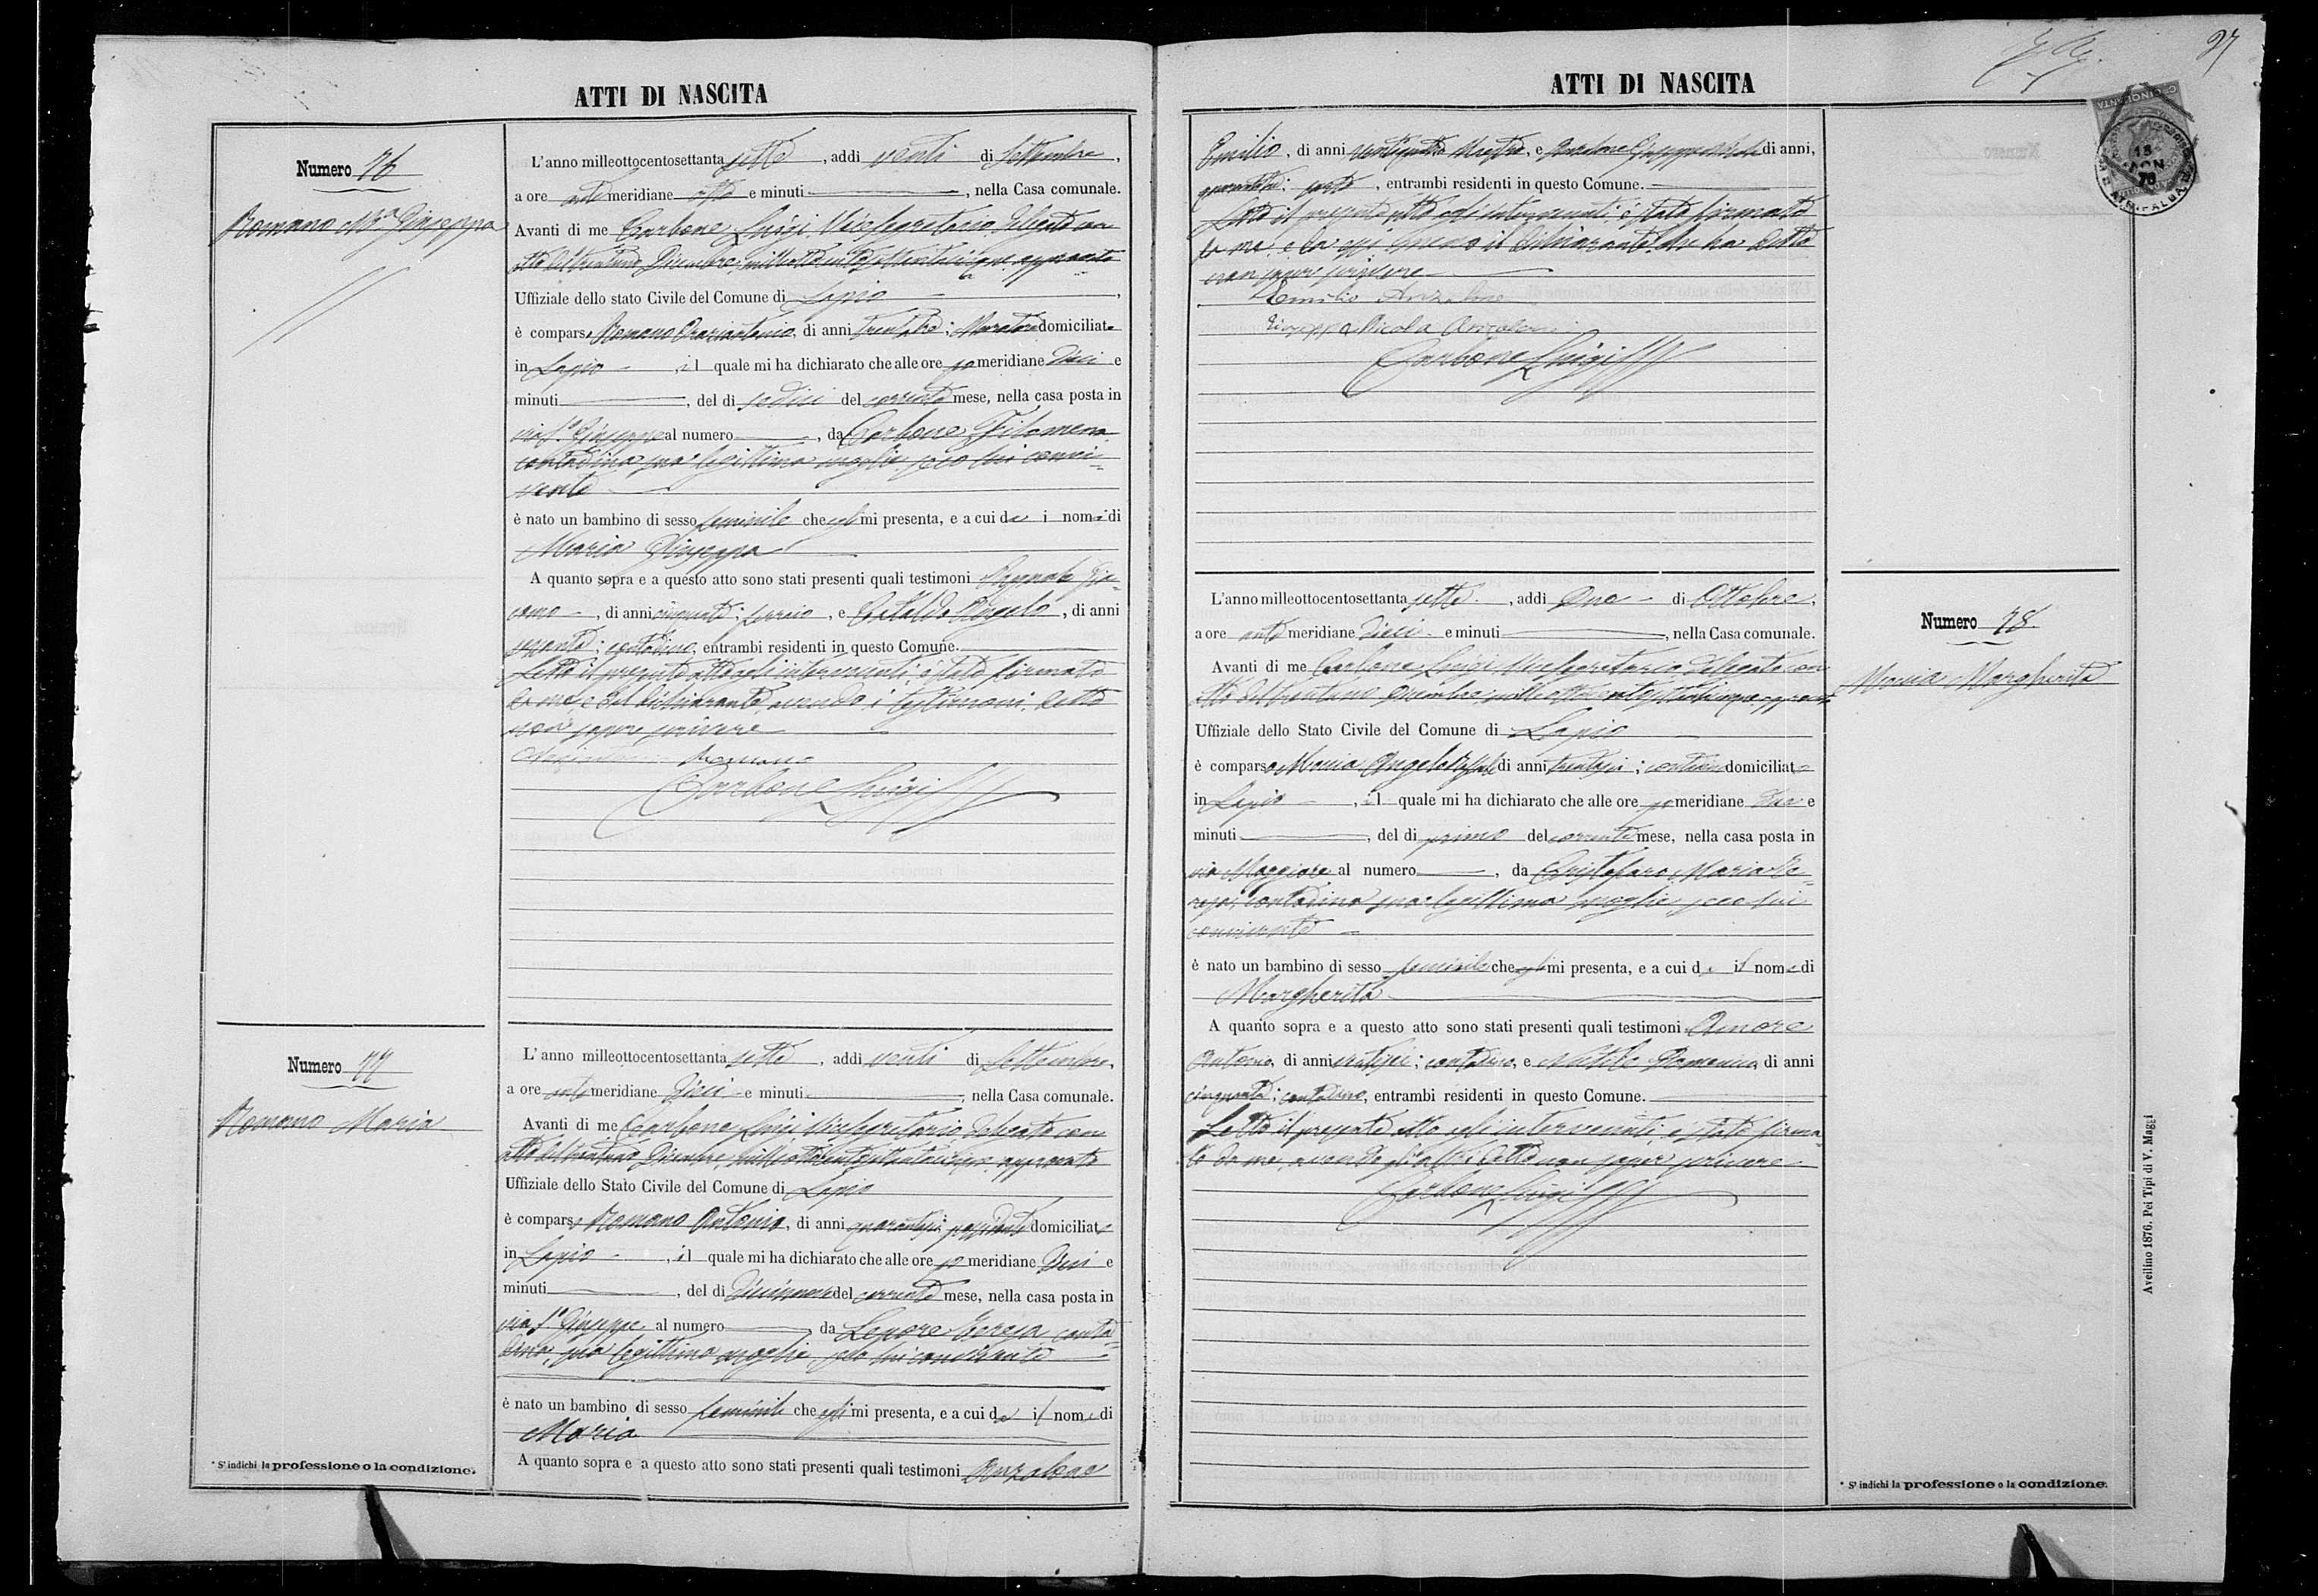 ATTI DI NASCITA
Numero 76
Romano Mª Giuseppa
L'anno milleottocentosettanta sette, addì venti di Settembre,
a ore anti meridiane otto e minuti, nella Casa comunale.
Avanti di me Carbone Luigi Vicesegretario delegato con
atto del trentuno Dicembre milleottocentosettantacinque approvato
Uffiziale dello stato Civile del Comune di Lapio
è comparso Romano Oraziantonio, di anni trentatre; Muratore domiciliato
in Lapio, il quale mi ha dichiarato che alle ore po meridiane dieci e
minuti, del dì sedici del corrente mese, nella casa posta in
via S. Giuseppe al numero, da Carbone Filomena
contadina sua legittima moglie seco lui convi=
vente
è nato un bambino di sesso feminile che egli mi presenta, e a cui da i nomi di
Maria Giuseppa
A quanto sopra e a questo atto sono stati presenti quali testimoni Gia=
como, di anni cinquanta;, e Cataldo Angelo, di anni
sessanta; contadino, entrambi residenti in questo Comune.
Letto il presente atto agli intervenuti è stato firmato
da me, e dal dichiarante avendo i testimoni detto
non sapere scrivere
Romano
Carbone Luigi
Numero 77
Romano Maria
L'anno milleottocentosettanta sette, addì venti di Settembre,
a ore anti meridiane dieci e minuti, nella Casa comunale.
Avanti di me Carbone Luigi Vicesegretario delegato con
atto del trentuno Dicembre milleottocentosettantacinque approvato
Uffiziale dello Stato Civile del Comune di Lapio
è comparso Romano Antonio, di anni quarantasei; possidente domiciliato
in Lapio, il quale mi ha dichiarato che alle ore po meridiane dieci e
minuti, del dì diecinove del corrente mese, nella casa posta in
via S. Giuseppe al numero da Lepore Teresa conta=
dina, sua legittima moglie, seco lui convivente
è nato un bambino di sesso feminile che egli mi presenta, e a cui da il nome di
Maria
A quanto sopra e a questo atto sono stati presenti quali testimoni Anzalone
* S'indichi la professione o la condizione.
ATTI DI NASCITA
27
Emilio, di anni ventiquattro, e Anzalone Giuseppe Nicola di anni,
quarantatre; sarto, entrambi residenti in questo Comune.
Letto il presente atto agli intervenuti è stato firmato
da me, e da essi meno il dichiarante che ha detto
non sapere scrivere
Emilio Anzalone
Giuseppe Nicola Anzalone
Carbone Luigi
L'anno milleottocentosettanta sette, addì due di Ottobre,
a ore anti meridiane dieci e minuti, nella Casa comunale.
Avanti di me Carbone Luigi Vicesegretario delegato con
atto del trentuno Dicembre milleottocentosettantacinque approvato
Uffiziale dello Stato Civile del Comune di Lapio
è comparso di anni trentasei; contadino domiciliato
in Lapio, il quale mi ha dichiarato che alle ore po meridiane due e
minuti, del dì primo del corrente mese, nella casa posta in
via Maggiore al numero, da Cristofaro Maria Te=
resa; contadina sua legittima moglie, seco lui
convivente
è nato un bambino di sesso feminile che egli mi presenta, e a cui da il nome di
Margherita
A quanto sopra e a questo atto sono stati presenti quali testimoni Amore
Antonio, di anni ventisei; contadino, e Domenico, di anni
cinquanta; contadino, entrambi residenti in questo Comune.
Letto il presente atto agli intervenuti, è stato firma=
to da me, avendo gli altri detto non saper scrivere
Carbone Luigi
Numero 78
Margherita
* S'indichi la professione o la condizione.
Avellino 1876. Pei Tipi di V. Maggi